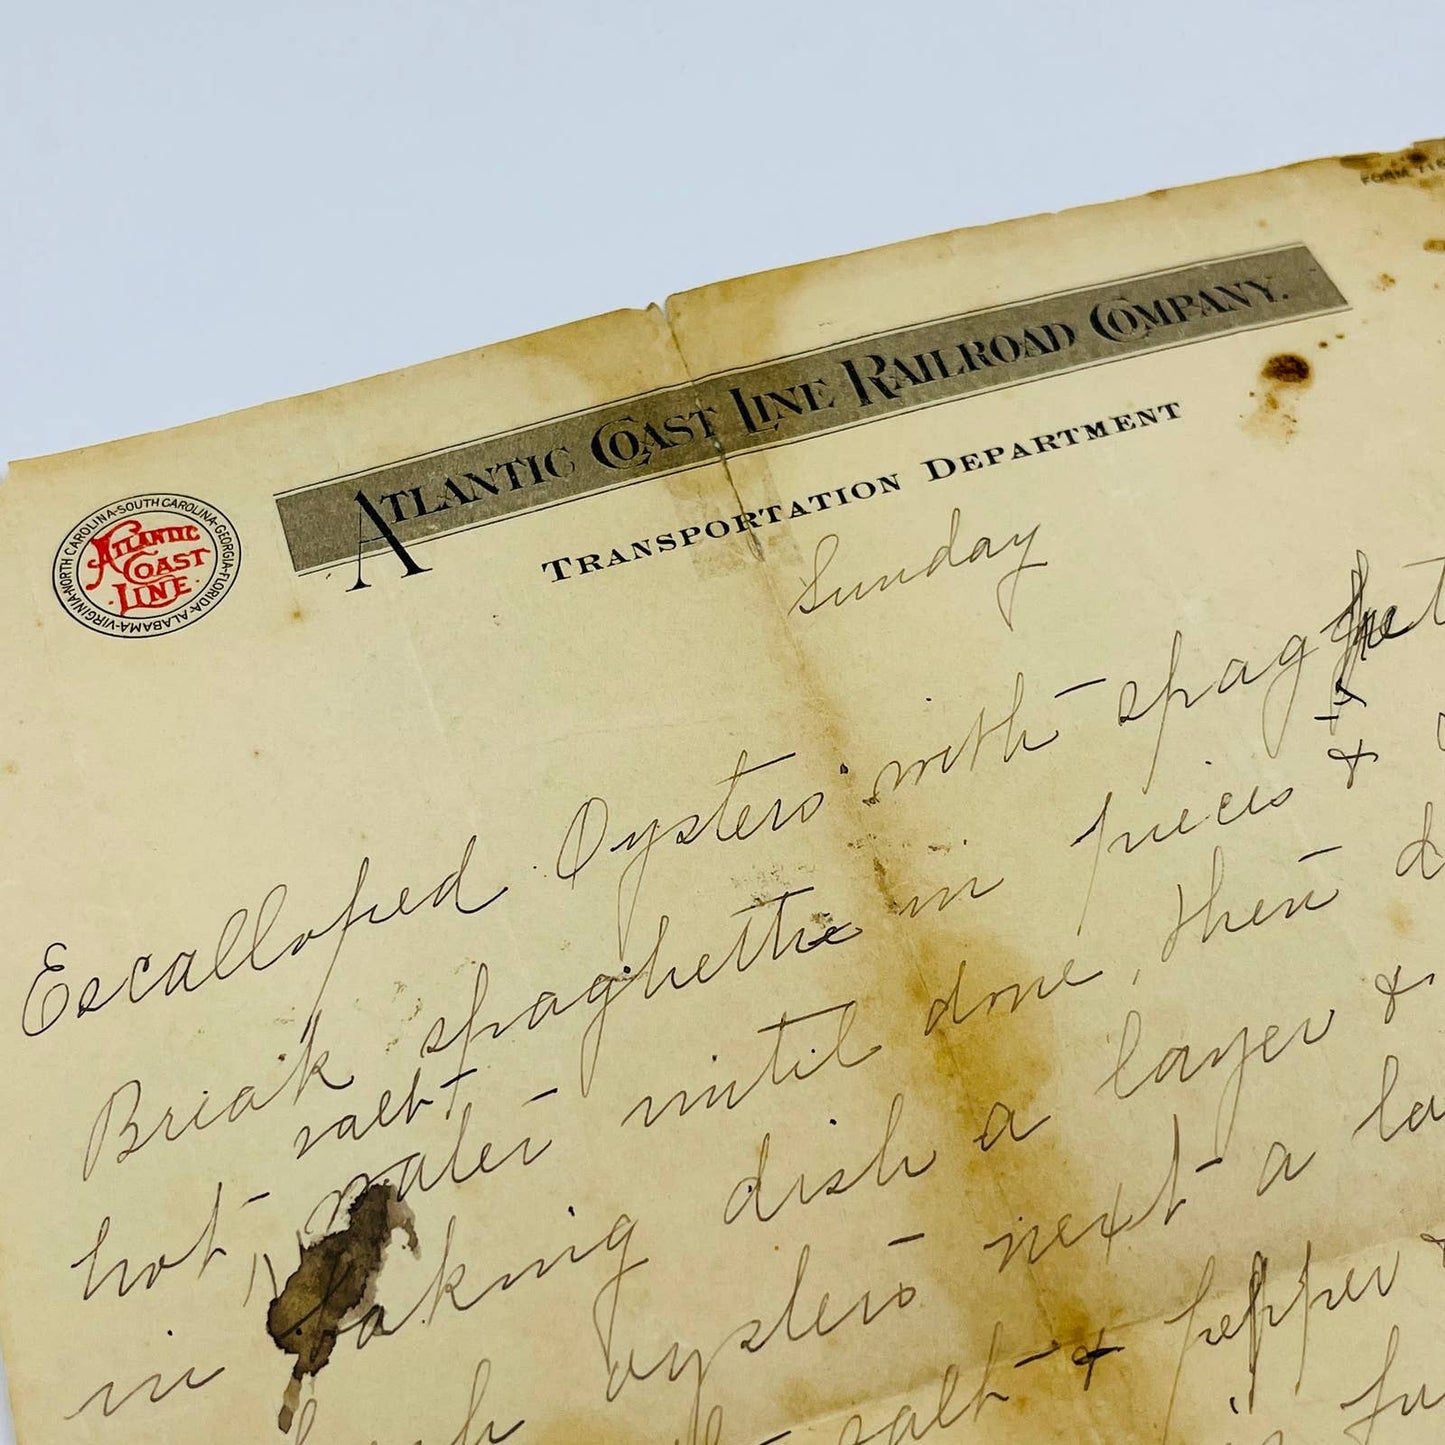 FORM 716
ATLANTIC COAST LINE RAILROAD COMPANY.
TRANSPORTATION DEPARTMENT
NORTH CAROLINA-SOUTH CAROLINA-GEORGIA-FLORIDA-ALABAMA-VIRGINIA-
ATLANTIC
COAST
LINE
Sunday
Escalloped Oysters with spaghet
Break spaghettie in pieces &
salt
hot water until done, then d
in baking dish a layer &
oysters next a la
salt & pepper &